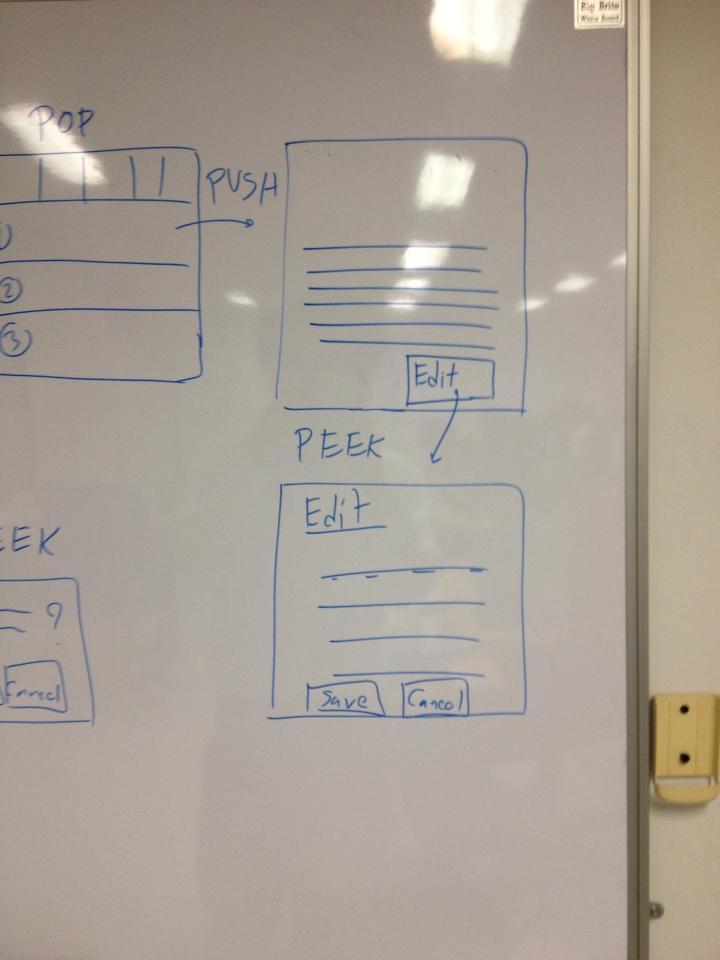 Big Brite
White Board
POP
PUSH
1
2
3
Edit
PEEK
Edit
Save
Cancel
EEK
?